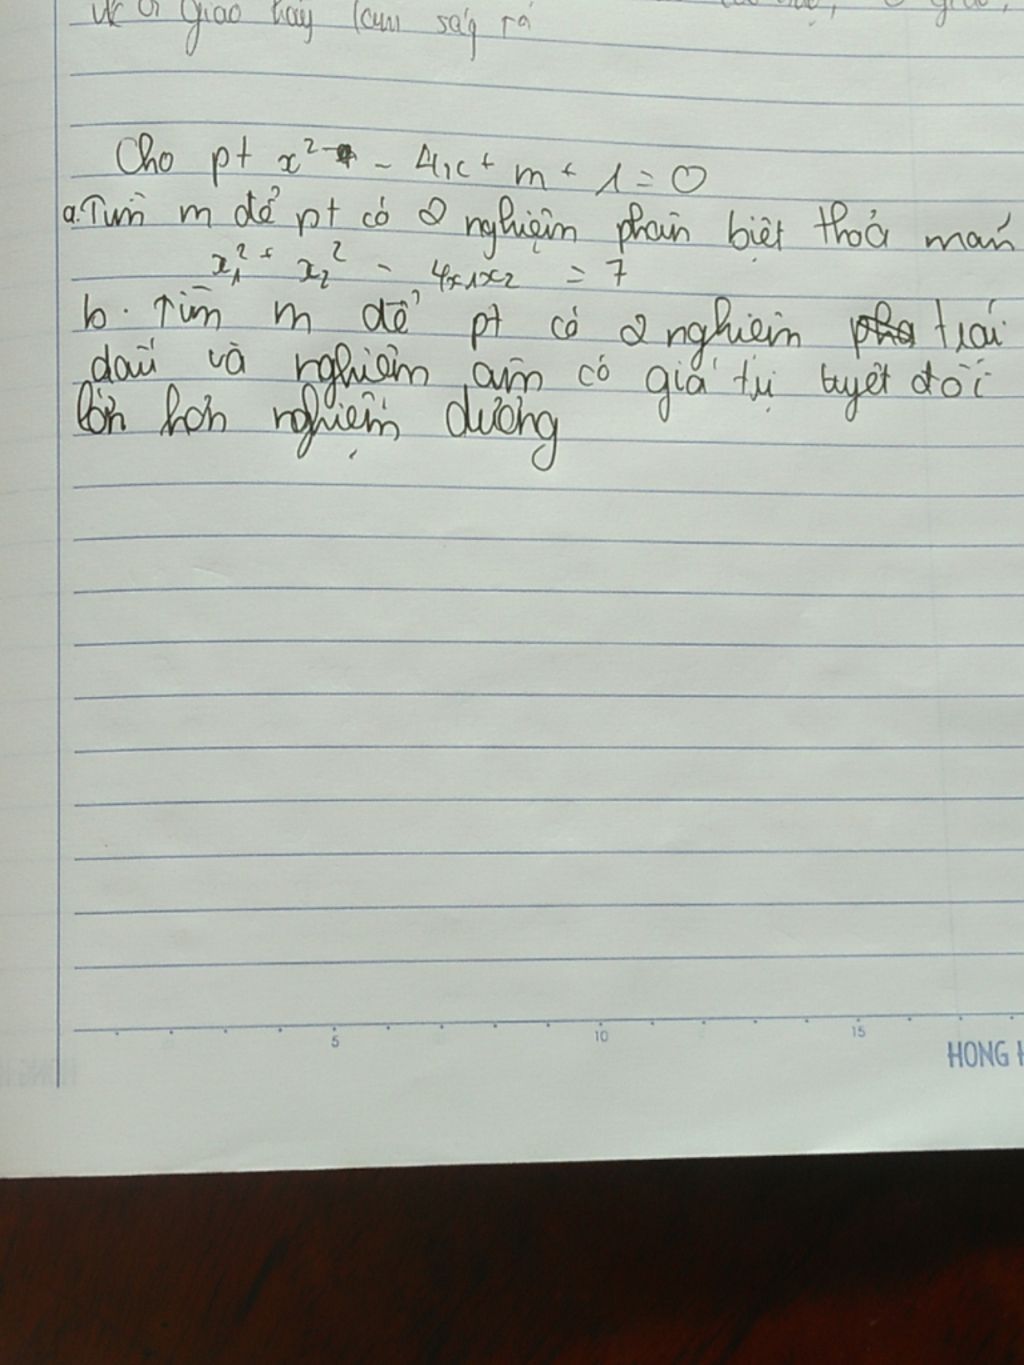 giao hay
Cho pt x² - 4x + m + 1 = 0
a. Tìm m để pt có 2 nghiệm phân biệt thoả mãn
x₁² + x₂² - 4x₁x₂ = 7
b. Tìm m để pt có 2 nghiệm trái
dấu và nghiệm âm có giá trị tuyệt đối
lớn hơn nghiệm dương
5 10 15
HONG H